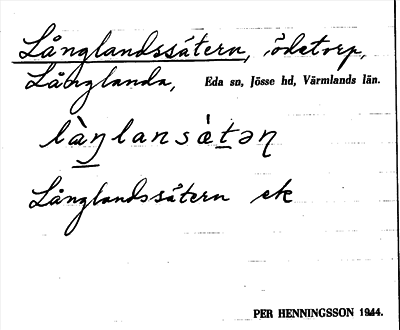 Långlandssätern, ödetorp,
Långlanda, Eda sn, Jösse hd, Värmlands län.
làŋlansètəɳ
Långlandssätern ek
PER HENNINGSSON 1944.